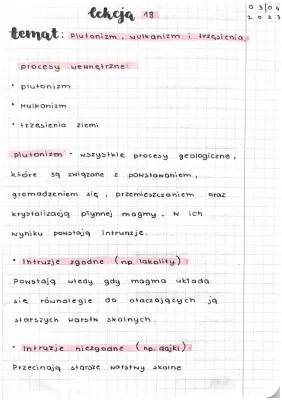 lekcja 18
03|04
2023
temat: plutonizm, wulkanizm i trzęsienia
procesy wewnętrzne:
• plutonizm
• wulkanizm
• trzęsienia ziemi
plutonizm - wszystkie procesy geologiczne,
które są związane z powstawaniem,
gromadzeniem się, przemieszczaniem oraz
krystalizacją płynnej magmy. W ich
wyniku powstają intruzje.
• Intruzje zgodne (np. lakolity)
Powstają wtedy gdy magma układa
się równolegle do otaczających ją
starszych warstw skalnych.
• Intruzje niezgodne (np. dajki)
Przecinają starsze warstwy skalne